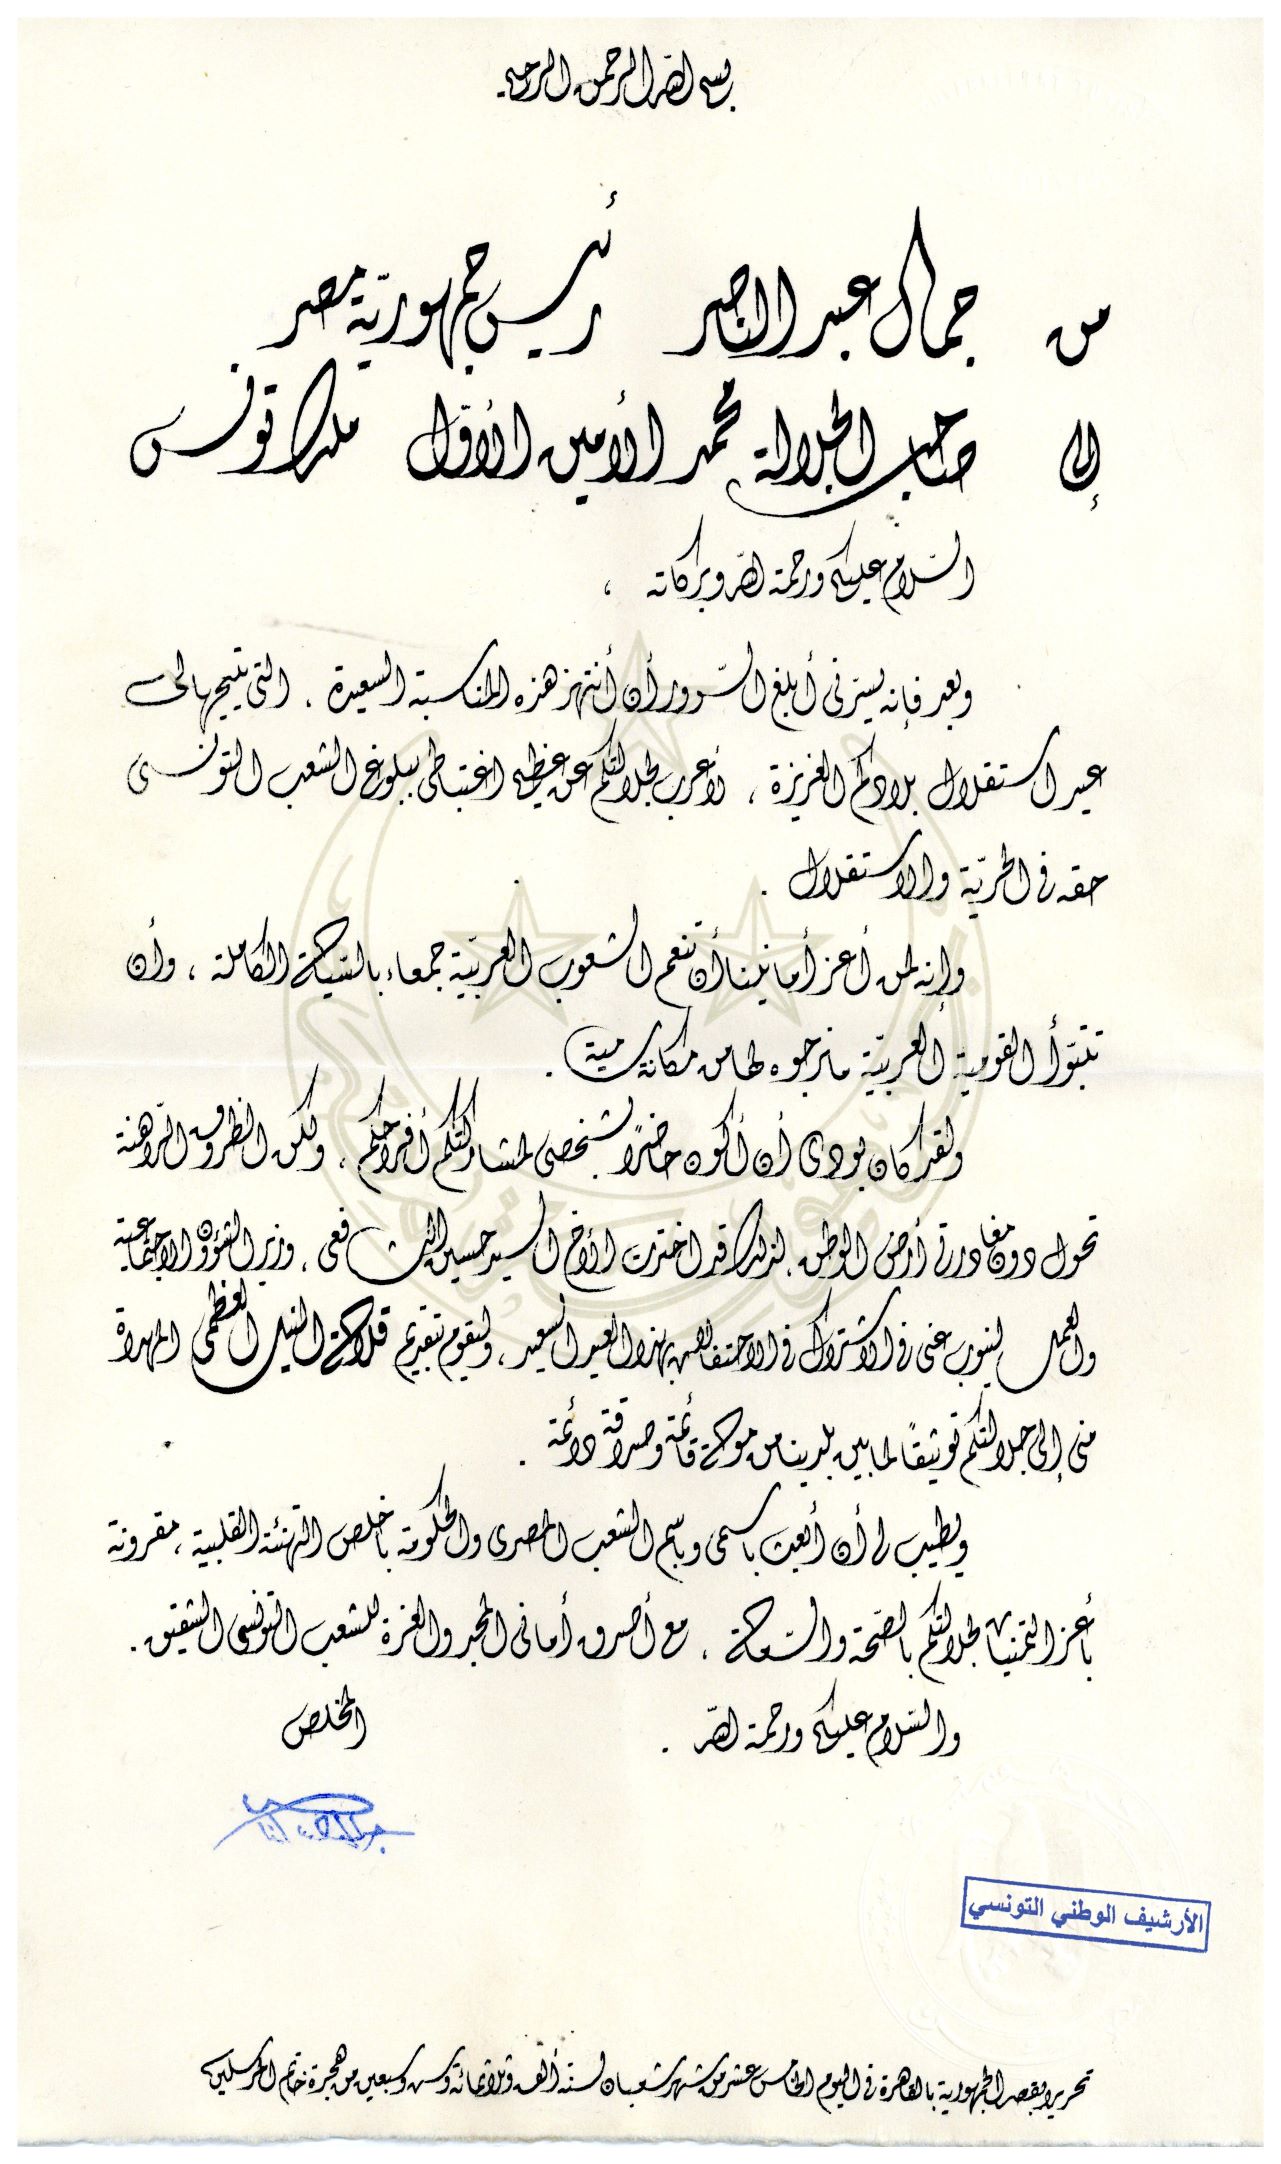 بسم الله الرحمن الرحيم
من جمال عبد الناصر رئيس جمهوريّة مصر
إلى صاحب الجلالة محمد الأمين الأوّل ملك تونس
السّلام عليكم ورحمة الله وبركاته ،
وبعد فإنه يسرّنى أبلغ السّرور أن أنتهز هذه المناسبة السعيدة ، التى يتيحها لى
عيد استقلال بلادكم العزيزة ، لأعرب لجلالتكم عن عظيم اغتباطى ببلوغ الشعب التونسى
حقه فى الحريّة والاستقلال .
وإنه لمن أعز أمانينا أن تنعم الشعوب العربيّة جمعاء بالسّيادة الكاملة ، وأن
تتبوّأ القومية العربيّة ما نرجوه لها من مكانة سامية .
ولقد كان بودى أن أكون حاضرًا بشخصى لمشاركتكم أفراحكم ، ولكن الظروف الرّاهنة
تحول دون مغادرتى أرض الوطن . لذلك قد اخترت الأخ السيد حسين الشافعى ، وزير الشؤون الاجتماعية
والعمل لينوب عنى فى الاشتراك فى الاحتفال بهذا العيد السعيد ، وليقوم بتقديم قلادة النيل العظمى المهداة
منى إلى جلالتكم توثيقًا لما بين بلدينا من مودة قائمة وصداقة دائمة .
ويطيب لى أن أبعث باسمى وباسم الشعب المصرى والحكومة بأخلص التهنئة القلبية ، مقرونة
بأعز التمنيات لجلالتكم بالصّحة والسّعادة ، مع أصدق أمانى المجد والعزة للشعب التونسى الشقيق .
والسّلام عليكم ورحمة الله .
المخلص
جمال عبد الناصر
الأرشيف الوطني التونسي
تحريرا بقصر الجمهورية بالقاهرة فى اليوم الخامس عشر من شهر شعبان لسنة ألف وثلاثمائة وست وسبعين من هجرة خاتم المرسلين